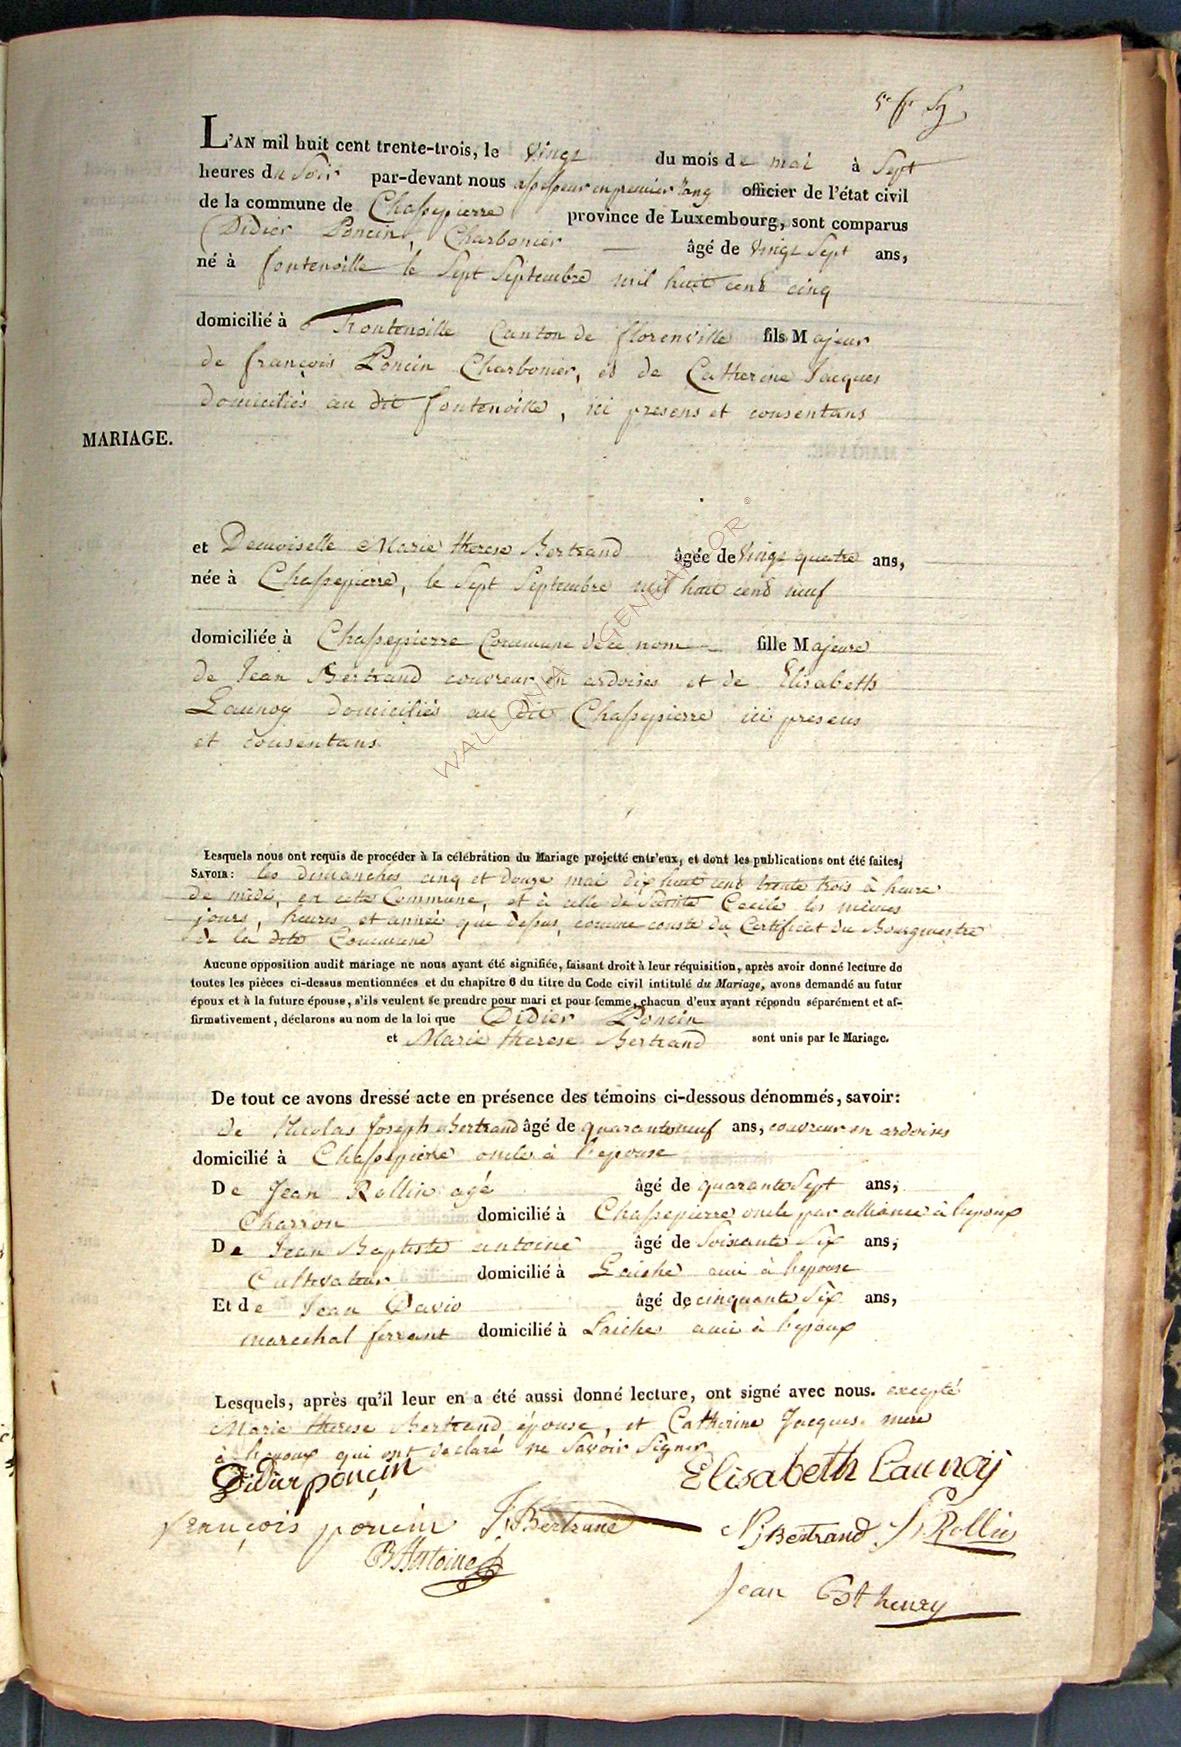 5e f
L'AN mil huit cent trente-trois, le vingt du mois de mai à Sept
heures du Soir par-devant nous assesseur en premier rang officier de l'état civil
de la commune de Chassepierre province de Luxembourg, sont comparus
Didier Poncin, Charbonier — âgé de vingt Sept ans,
né à fontenoille le Sept Septembre mil huit cent cinq
domicilié à fontenoille Canton de florenville fils Majeur
de françois Poncin Charbonier, et de Catherine Jacques
domiciliés au dit fontenoille, ici presens et consentans
MARIAGE.
et Demoiselle Marie therese Bertrand âgée de Vingt quatre ans,
née à Chassepierre, le Sept Septembre mil huit cent neuf
domiciliée à Chassepierre Commune de ce nom fille Majeure
de Jean Bertrand couvreur en ardoises et de Elisabeth
Launoy domiciliés au dit Chassepierre ici presens
et consentans
WALLONIA GENDAT OR ©
Lesquels nous ont requis de procéder à la célébration du Mariage projetté entr'eux, et dont les publications ont été faites,
SAVOIR: les dimanches cinq et douze mai dix huit cent trente trois à heure
de midi, en cette Commune, et à celle de Sainte Cecile les mêmes
jours, heures et année que dessus, comme conste du Certificat du Bourgmestre
de la dite Commune
Aucune opposition audit mariage ne nous ayant été signifiée, faisant droit à leur réquisition, après avoir donné lecture de
toutes les pièces ci-dessus mentionnées et du chapitre 6 du titre du Code civil intitulé du Mariage, avons demandé au futur
époux et à la future épouse, s'ils veulent se prendre pour mari et pour femme, chacun d'eux ayant répondu séparément et af-
firmativement, déclarons au nom de la loi que Didier Poncin
et Marie therese Bertrand sont unis par le Mariage.
De tout ce avons dressé acte en présence des témoins ci-dessous dénommés, savoir:
de Nicolas Joseph Bertrand âgé de quarante neuf ans, couvreur en ardoises
domicilié à Chassepierre oncle à l'epouse
De Jean Rollin agé âgé de quarante Sept ans,
Charron domicilié à Chassepierre oncle par alliance à l'epoux
De Jean Baptiste antoine âgé de Soixante Six ans,
Cultivateur domicilié à Laiche ami à l'epouse
Et de Jean David âgé de cinquante Six ans,
marechal ferrant domicilié à Laiche ami à l'epoux
Lesquels, après qu'il leur en a été aussi donné lecture, ont signé avec nous. excepté
Marie therese Bertrand épouse, et Catherine Jacques mere
à l'epoux qui ont declaré ne Savoir Signer
Didier poncin Elisabeth Launoij
françois poncin J, Bertrand Nj Bertrand J, Rollin
B Antoine
Jean Bt henry